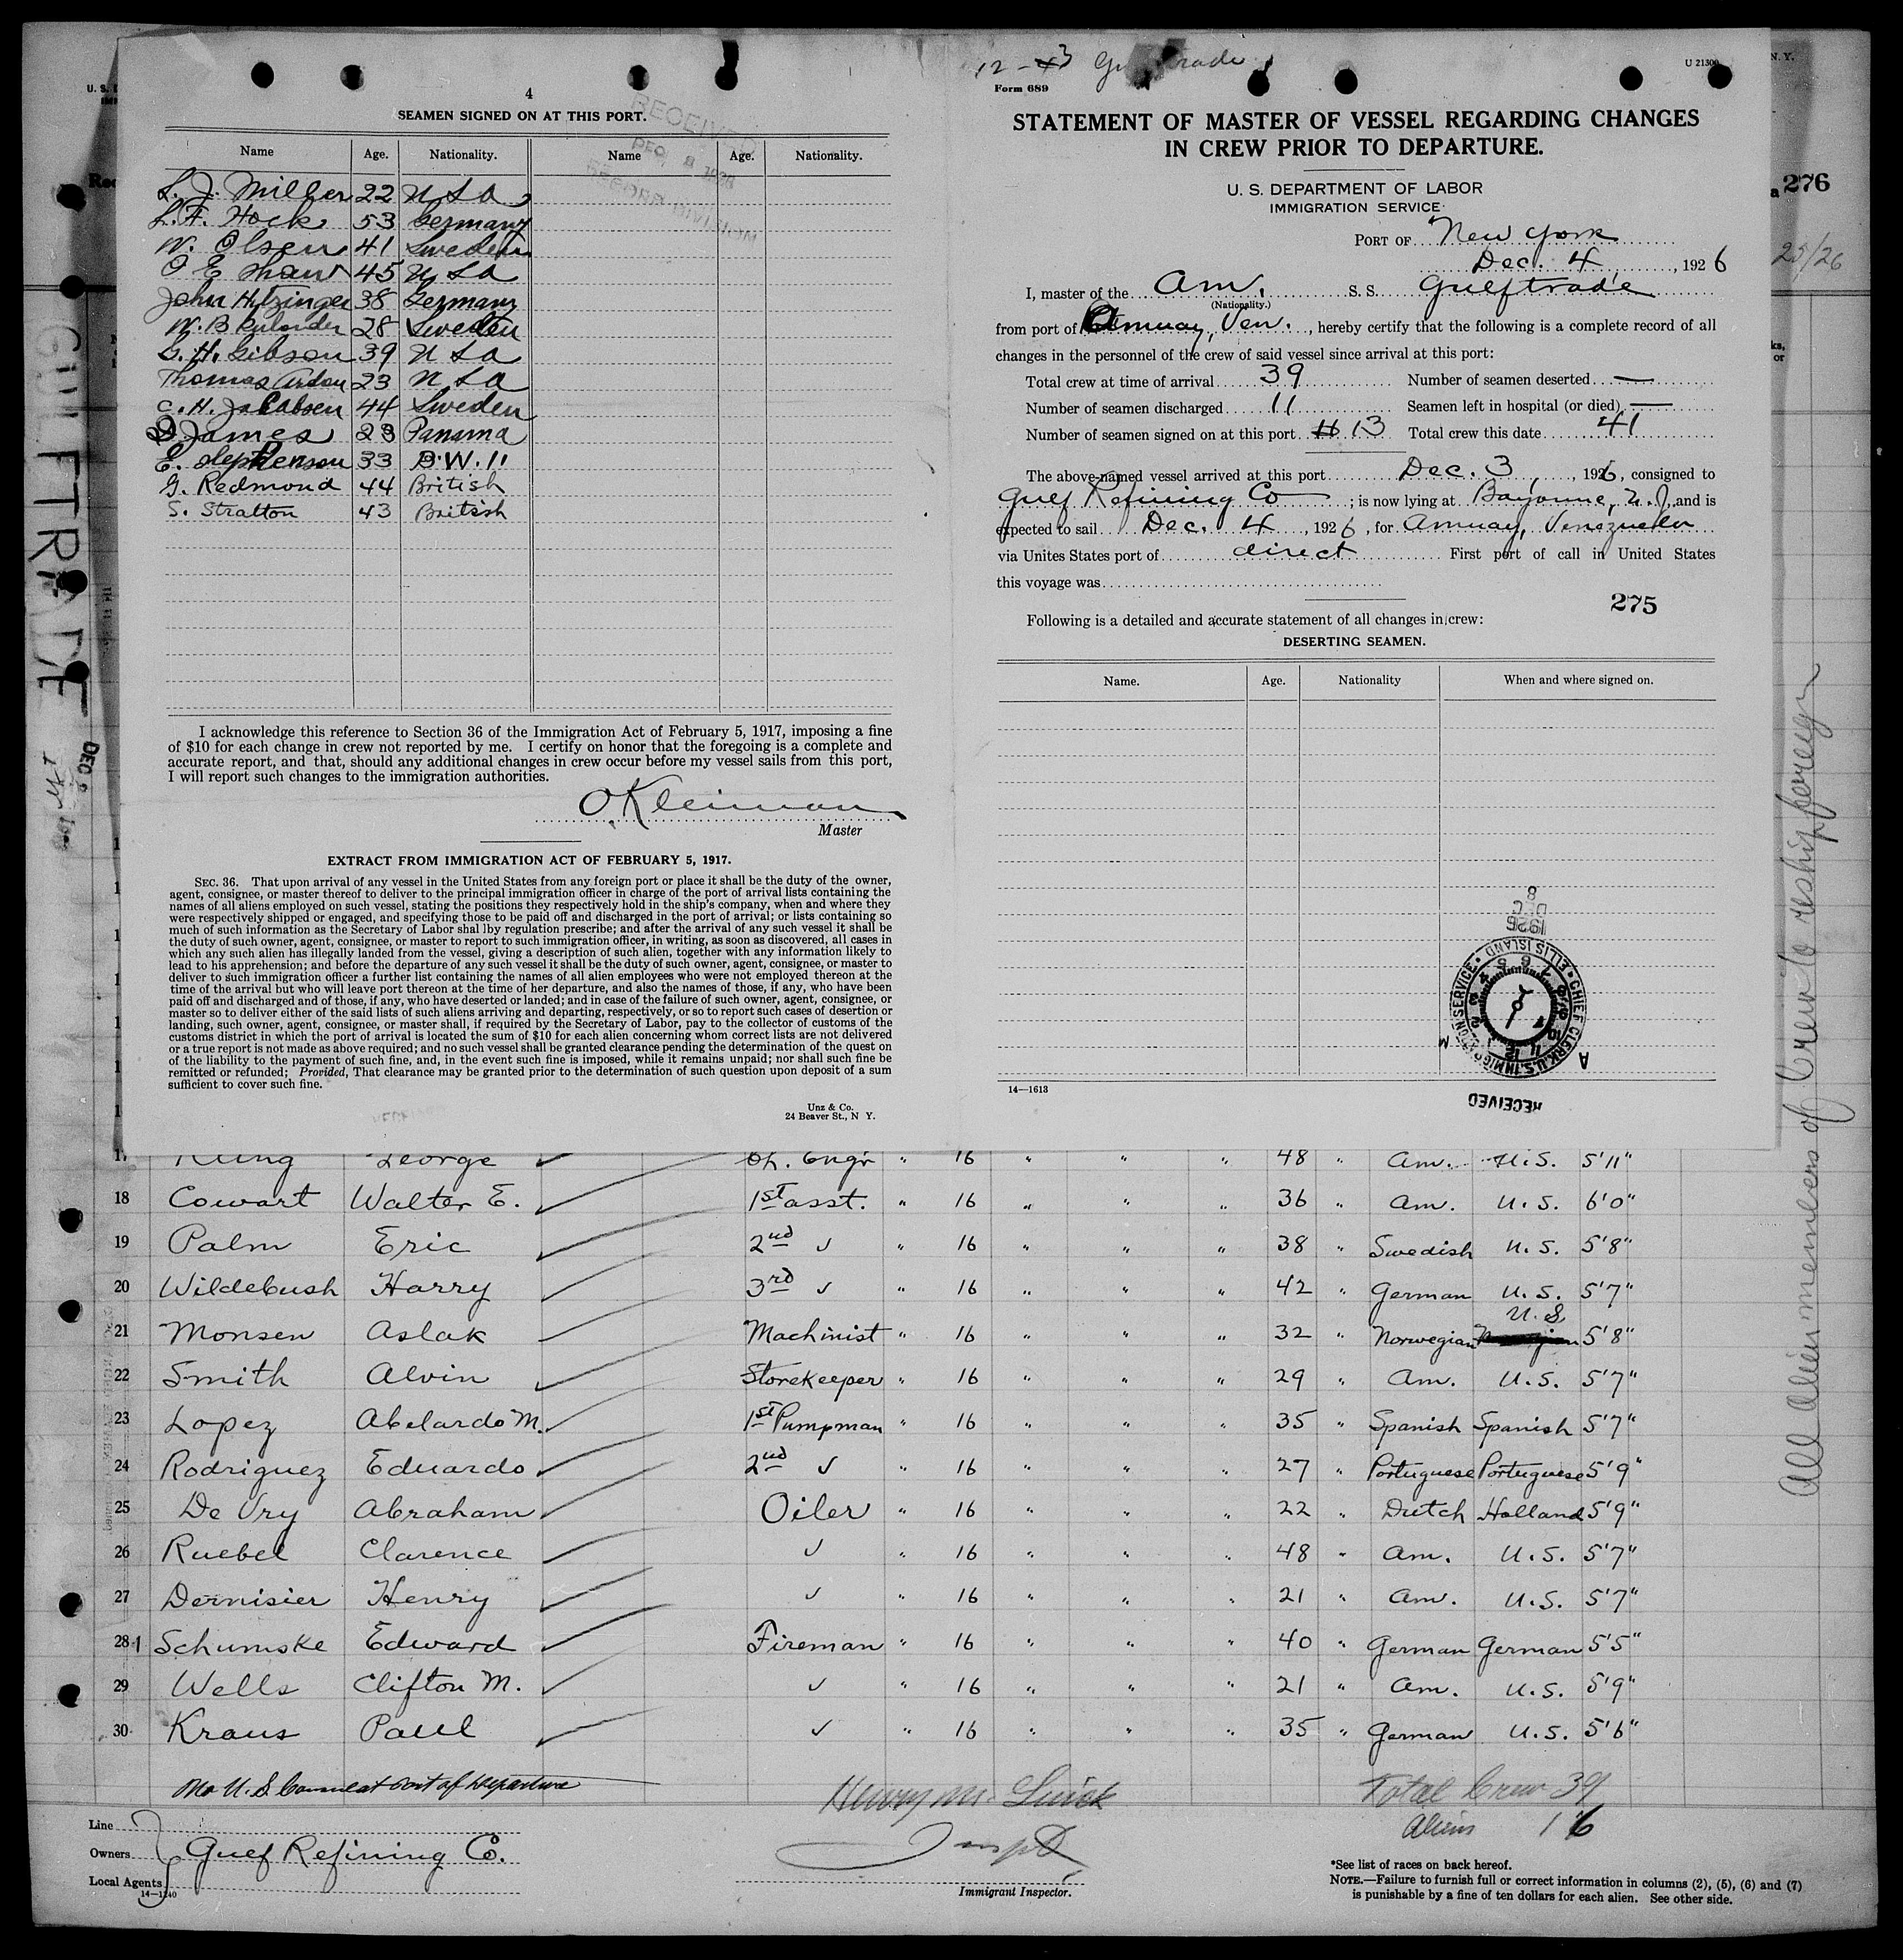 4
SEAMEN SIGNED ON AT THIS PORT.
RECEIVED
DEC 8 1926
RECORD DIVISION
Name Age. Nationality. Name Age. Nationality.
L. J. Miller 22 U S A
L. F. Hock 53 Germany
W. Olsen 41 Sweden
O E Shaw 45 U S A
John Hitzinger 38 Germany
W. B 28 Sweden
G. H. Gibson 39 U S A
Thomas 23 U S A
C. H. Jacobsen 44 Sweden
James 23 Panama
E. Stephenson 33 B. W. I
G. Redmond 44 British
S. Stratton 43 British
I acknowledge this reference to Section 36 of the Immigration Act of February 5, 1917, imposing a fine
of $10 for each change in crew not reported by me. I certify on honor that the foregoing is a complete and
accurate report, and that, should any additional changes in crew occur before my vessel sails from this port,
I will report such changes to the immigration authorities.
O Kleiman
Master
EXTRACT FROM IMMIGRATION ACT OF FEBRUARY 5, 1917.
SEC. 36. That upon arrival of any vessel in the United States from any foreign port or place it shall be the duty of the owner,
agent, consignee, or master thereof to deliver to the principal immigration officer in charge of the port of arrival lists containing the
names of all aliens employed on such vessel, stating the positions they respectively hold in the ship's company, when and where they
were respectively shipped or engaged, and specifying those to be paid off and discharged in the port of arrival; or lists containing so
much of such information as the Secretary of Labor shal lby regulation prescribe; and after the arrival of any such vessel it shall be
the duty of such owner, agent, consignee, or master to report to such immigration officer, in writing, as soon as discovered, all cases in
which any such alien has illegally landed from the vessel, giving a description of such alien, together with any information likely to
lead to his apprehension; and before the departure of any such vessel it shall be the duty of such owner, agent, consignee, or master to
deliver to such immigration officer a further list containing the names of all alien employees who were not employed thereon at the
time of the arrival but who will leave port thereon at the time of her departure, and also the names of those, if any, who have been
paid off and discharged and of those, if any, who have deserted or landed; and in case of the failure of such owner, agent, consignee, or
master so to deliver either of the said lists of such aliens arriving and departing, respectively, or so to report such cases of desertion or
landing, such owner, agent, consignee, or master shall, if required by the Secretary of Labor, pay to the collector of customs of the
customs district in which the port of arrival is located the sum of $10 for each alien concerning whom correct lists are not delivered
or a true report is not made as above required; and no such vessel shall be granted clearance pending the determination of the quest on
of the liability to the payment of such fine, and, in the event such fine is imposed, while it remains unpaid; nor shall such fine be
remitted or refunded; Provided, That clearance may be granted prior to the determination of such question upon deposit of a sum
sufficient to cover such fine.
Unz & Co.
24 Beaver St., N Y.
12-3 Gulftrade
U 21300
Form 689
STATEMENT OF MASTER OF VESSEL REGARDING CHANGES
IN CREW PRIOR TO DEPARTURE.
U. S. DEPARTMENT OF LABOR
IMMIGRATION SERVICE
PORT OF New York
Dec. 4, 1926
I, master of the Am. S. S. Gulftrade
(Nationality.)
from port of Amuay, Ven., hereby certify that the following is a complete record of all
changes in the personnel of the crew of said vessel since arrival at this port:
Total crew at time of arrival 39 Number of seamen deserted —
Number of seamen discharged 11 Seamen left in hospital (or died) —
Number of seamen signed on at this port 11 13 Total crew this date 41
The above-named vessel arrived at this port Dec. 3, 1926, consigned to
Gulf Refining Co ; is now lying at Bayonne, N. J. and is
expected to sail Dec. 4, 1926, for Amuay, Venezuela
via Unites States port of direct First port of call in United States
this voyage was
275
Following is a detailed and accurate statement of all changes in crew:
DESERTING SEAMEN.
Name. Age. Nationality When and where signed on.
1926 DEC 8
CHIEF CLERK, U.S. IMMIGRATION SERVICE • ELLIS ISLAND •
A M
RECEIVED
14—1613
N. Y.
276
25/26
GULFTRADE
DEC
All alien members of Crew to reship foreign
17 Kling George Ch. Engr " 16 " " " 48 " Am. U.S. 5'11"
18 Cowart Walter E. 1st asst. " 16 " " " 36 " Am. U.S. 6'0"
19 Palm Eric 2nd ✓ " 16 " " " 38 " Swedish U.S. 5'8"
20 Wildebush Harry 3rd ✓ " 16 " " " 42 " German U.S. 5'7"
21 Monsen Aslak Machinist " 16 " " " 32 " Norwegian U.S. 5'8"
22 Smith Alvin Storekeeper " 16 " " " 29 " Am. U.S. 5'7"
23 Lopez Abelardo M. 1st Pumpman " 16 " " " 35 " Spanish Spanish 5'7"
24 Rodriguez Eduardo 2nd ✓ " 16 " " " 27 " Portuguese Portuguese 5'9"
25 De Vry Abraham Oiler " 16 " " " 22 " Dutch Holland 5'9"
26 Ruebel Clarence ✓ " 16 " " " 48 " Am. U.S. 5'7"
27 Dernisier Henry ✓ " 16 " " " 21 " Am. U.S. 5'7"
28 1 Schumske Edward Fireman " 16 " " " 40 " German German 5'5"
29 Wells Clifton M. ✓ " 16 " " " 21 " Am. U.S. 5'9"
30 Kraus Paul ✓ " 16 " " " 35 " German U.S. 5'6"
No U.S. Consul at Port of Departure
Henry M.
Total Crew 39
Aliens 16
Line
Owners Gulf Refining Co.
Local Agents
14—1240
Insp
Immigrant Inspector.
*See list of races on back hereof.
NOTE.—Failure to furnish full or correct information in columns (2), (5), (6) and (7)
is punishable by a fine of ten dollars for each alien. See other side.